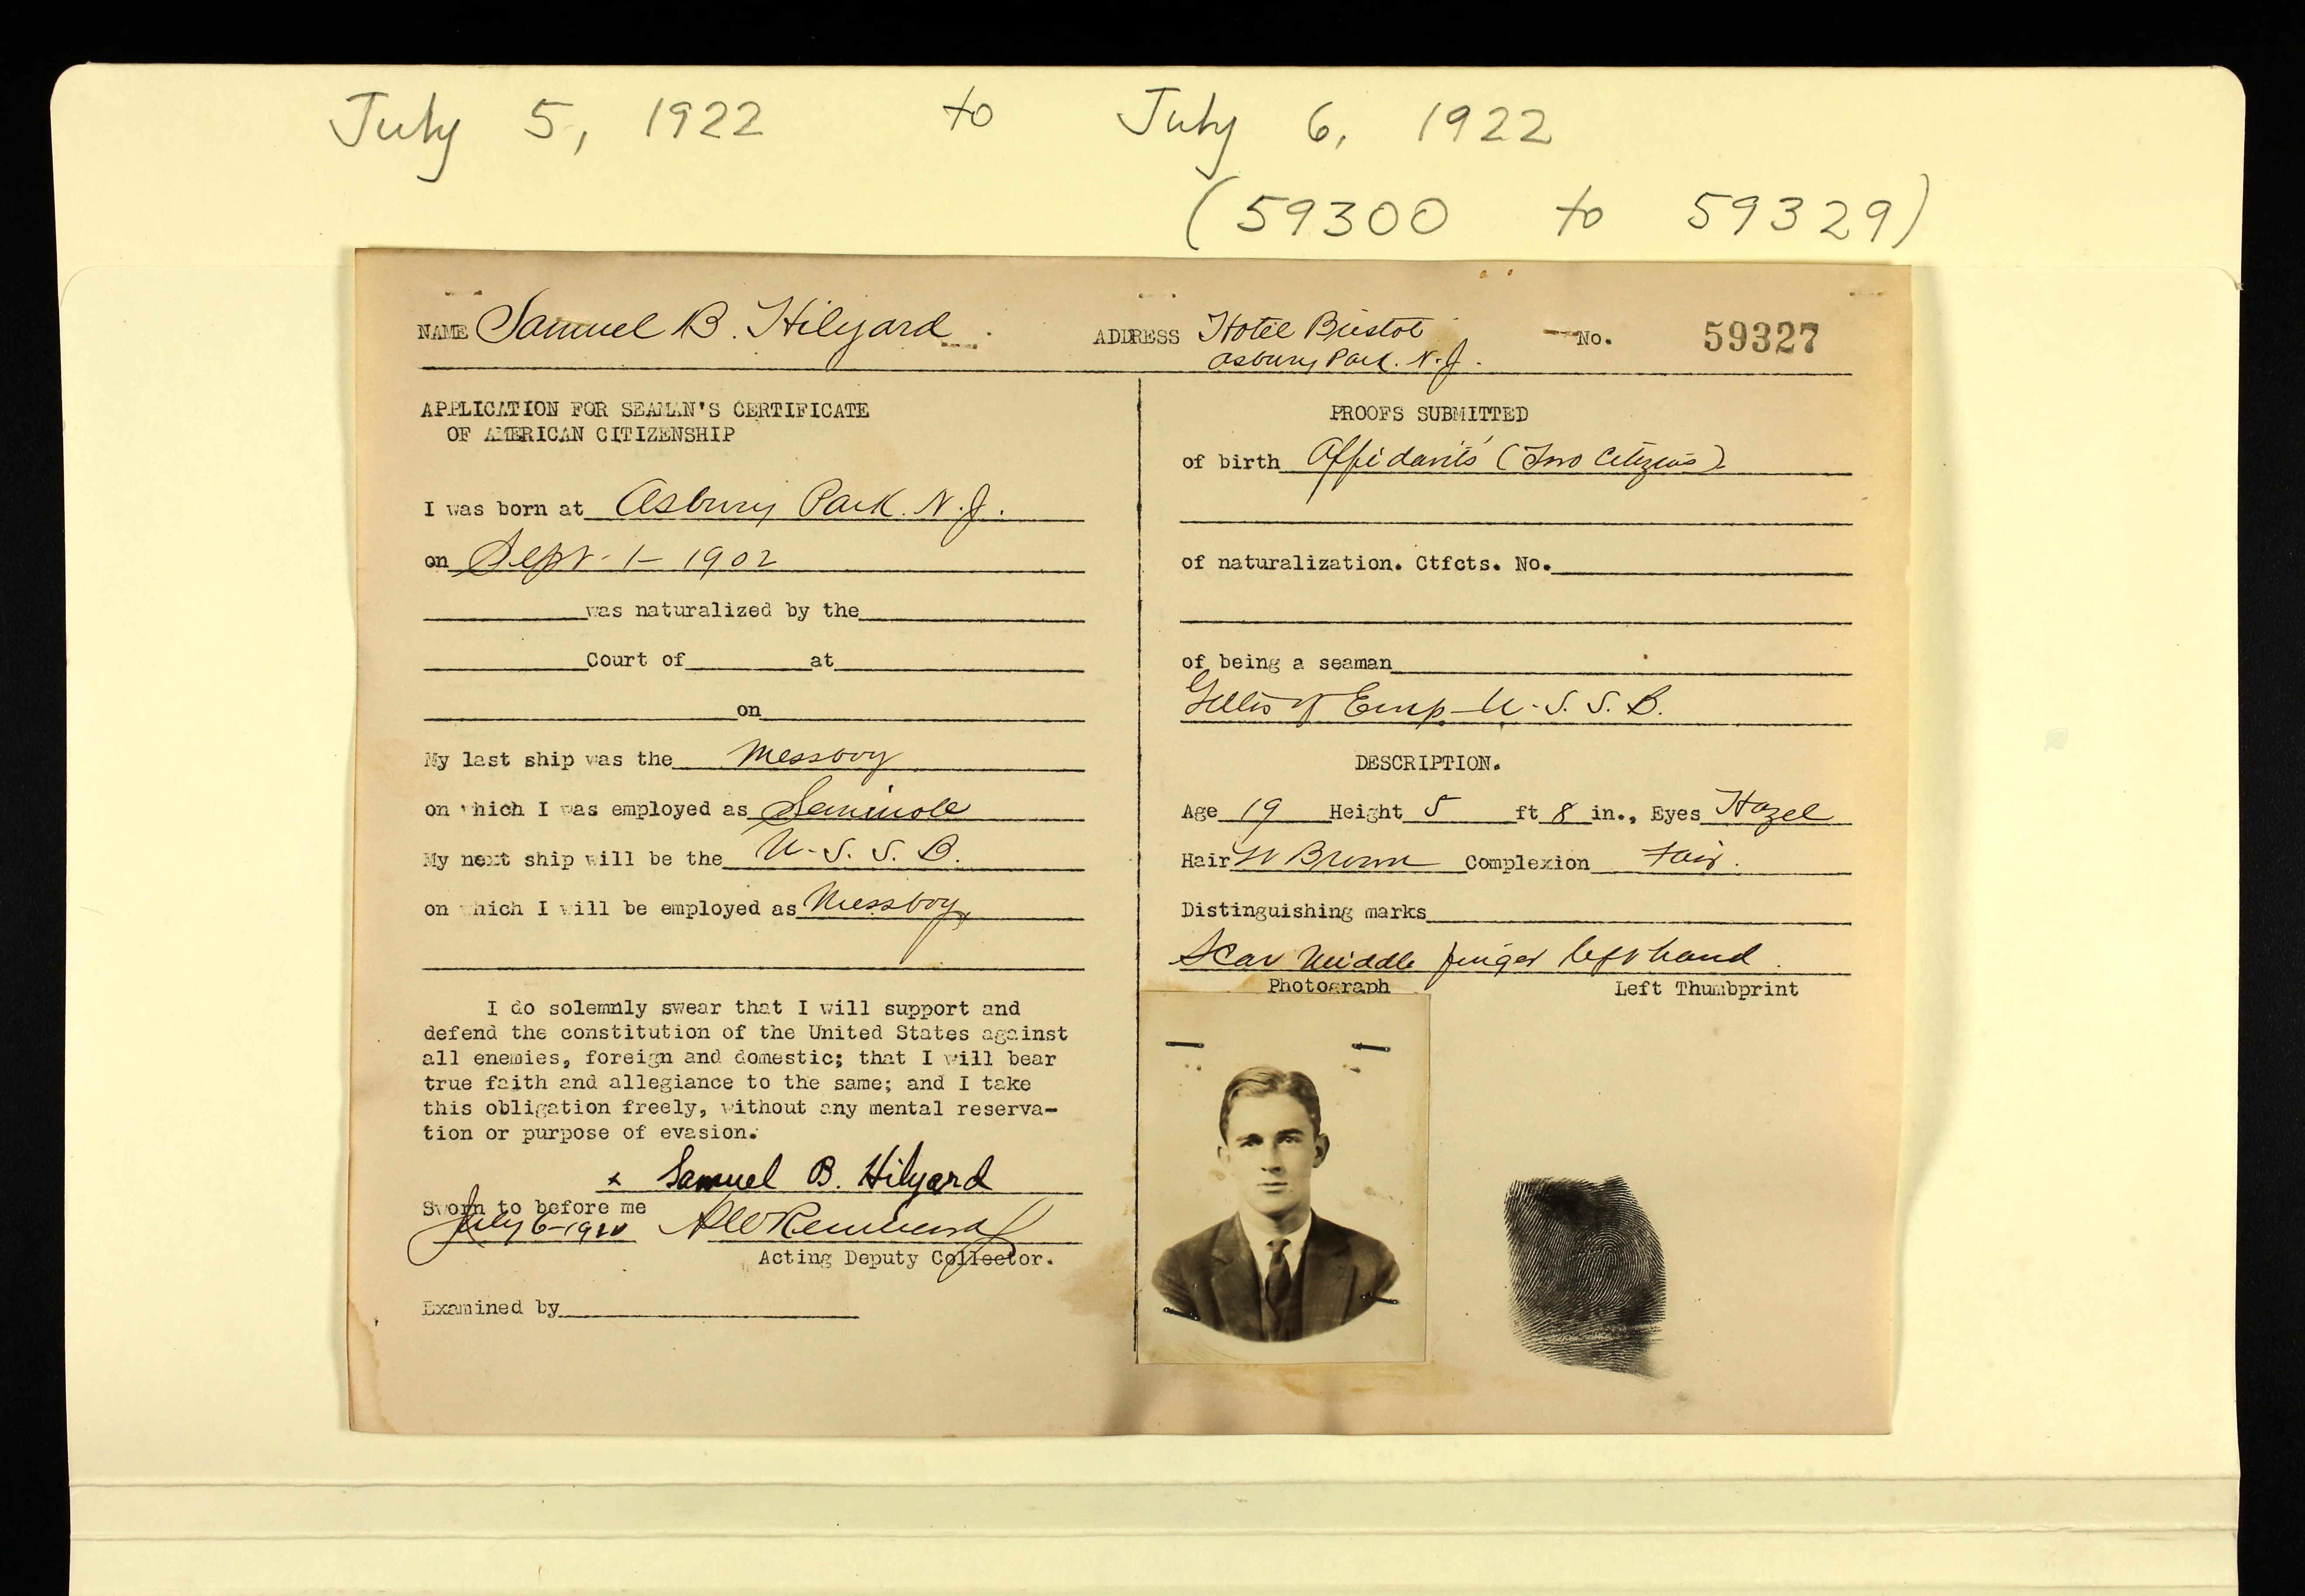 July 5, 1922 to July 6, 1922
(59300 to 59329)
NAME Samuel B. Hilyard ADDRESS Hotel Bristol No. 59327
Asbury Park. N.J.
APPLICATION FOR SEAMAN'S CERTIFICATE
OF AMERICAN CITIZENSHIP
I was born at Asbury Park. N.J.
on Sept. 1-1902
was naturalized by the
Court of at
on
My last ship was the Messboy
on which I was employed as Seminole
My next ship will be the U.S.S.B.
on which I will be employed as Messboy
I do solemnly swear that I will support and
defend the constitution of the United States against
all enemies, foreign and domestic; that I will bear
true faith and allegiance to the same; and I take
this obligation freely, without any mental reserva-
tion or purpose of evasion.
x Samuel B. Hilyard
Sworn to before me
July 6-1922
Acting Deputy Collector.
Examined by
PROOFS SUBMITTED
of birth Affidavits (Two Citizens)
of naturalization. Ctfcts. No.
of being a seaman
Emp-U.S.S.B.
DESCRIPTION.
Age 19 Height 5 ft 8 in., Eyes Hazel
Hair Brown Complexion Fair.
Distinguishing marks
Scar Middle finger left hand.
Photograph Left Thumbprint